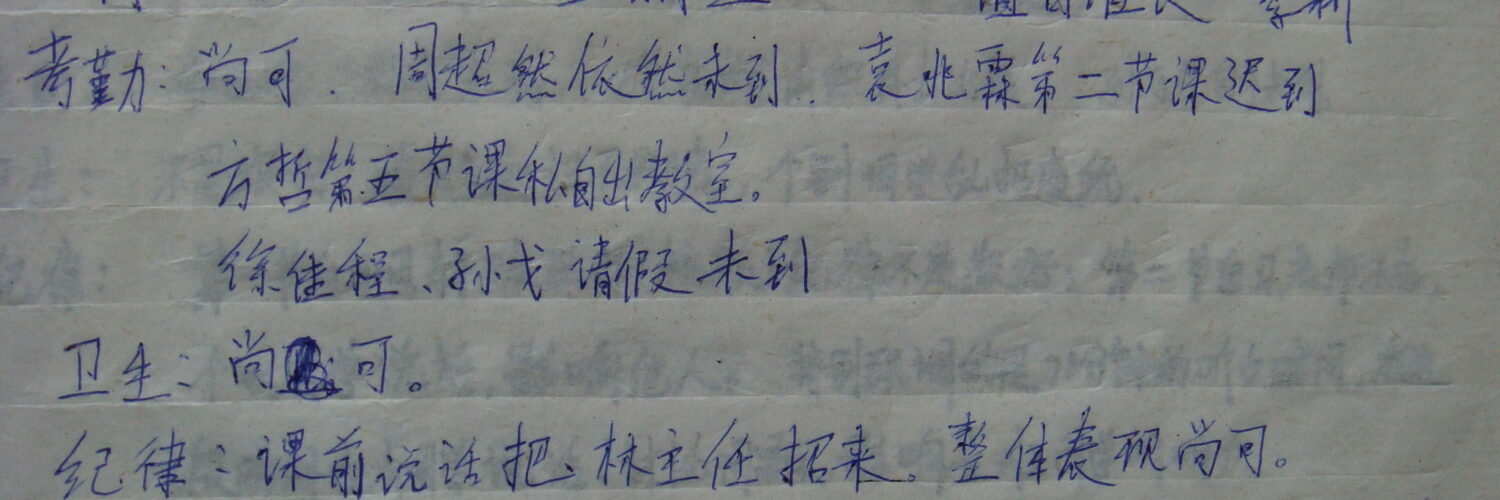 考勤：尚可．周超然依然未到．袁兆霖第二节课迟到
方哲第五节课私自出教室。
徐佳程、孙戈请假未到
卫生：尚可。
纪律：课前说话把、林主任招来。整体表现尚可。